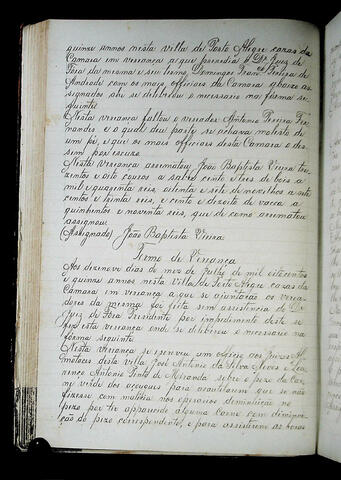 quinze annos nesta villa de Porto Alegre cazas da
Camara em vereança a que prezedia o Dor. Juiz de
Fora da mesma e seu termo Domingos Franco. Pereira de
Andrade com os mais officiaes da Camara abaixo as-
signados ahi se deliberou o necessario na forma se-
guinte
Nesta vereança faltou o vereador Antonio Pereira Fer-
nandes e o qual deu parte se achava molesto de
um pé, e que os mais officiaes desta Camara o des-
sem por escuzo.
Nesta vereança arrematou João Baptista Vieira tre-
zentos e oito couros a saber cento e tres de bois a
mil e quarenta reis, oitenta e sete de novilhos a sete
centos e trinta reis, e cento e dezoito de vacca a
quinhentos e noventa reis, que de como arrematou
assignou.
(Assignado) João Baptista Vieira
Termo de Vereança
Aos dezenove dias do mez de Julho de mil oitocentos
e quinze annos nesta Villa de Porto Alegre cazas da
Camara em vereança a que se ajuntarão os verea-
dores da mesma foi feita sem assistencia do Dr.
Juiz de Fora Prezidente por impedimento deste se
fez esta vereança onde se deliberou o necessario na
forma seguinte
Nesta vereança se escreveu um officio aos Juizes Al-
motaces desta villa José Antonio da Silva Neves e Lou-
renço Antonio Pinto de Miranda sobre o pezo da Car-
ne verde dos açougues para acautelarem que se não
fizesse com malicia nos operarios diminuição no
pezo por ter apparecido alguma Carne com diminui-
ção do pezo correspondente, e para assistirem as horas